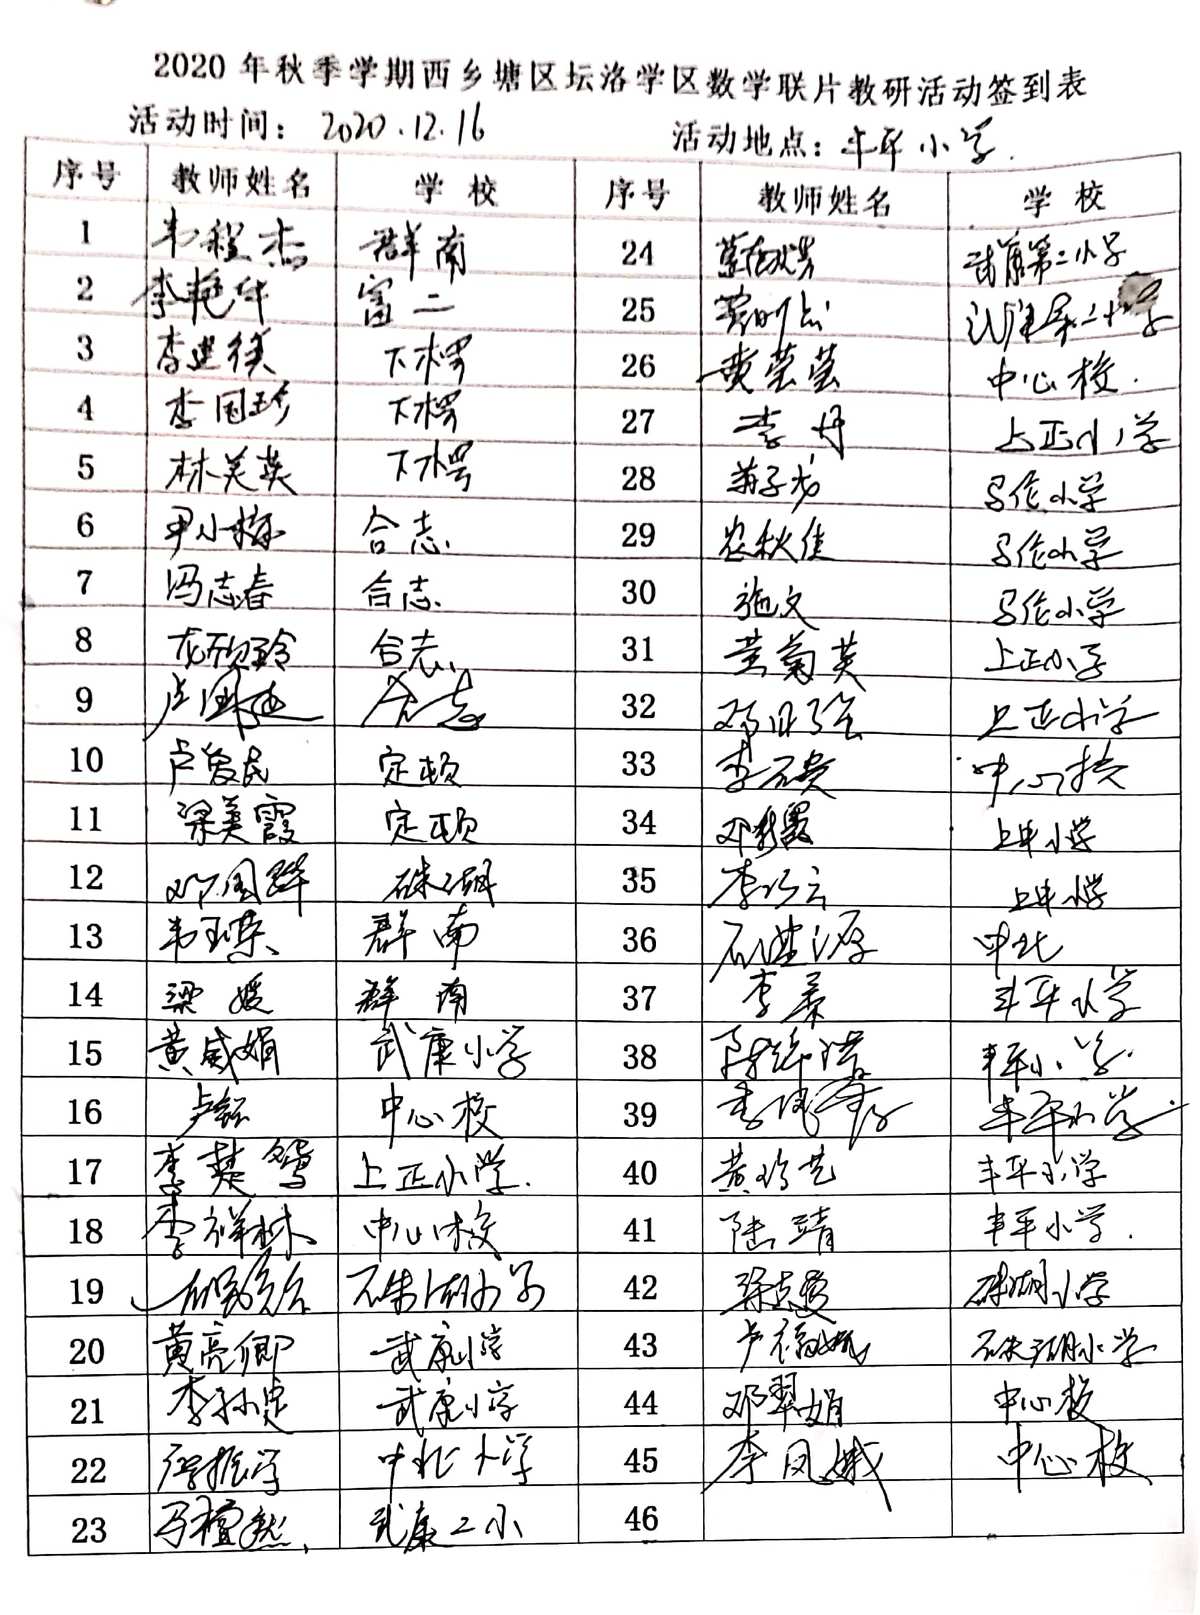 2020年秋季学期西乡塘区坛洛学区数学联片教研活动签到表
活动时间：2020.12.16 活动地点：丰平小学.
序号 教师姓名 学校 序号 教师姓名 学校
1 韦程杰 群南 24 武康第二小学
2 李艳华 富二 25
3 李建镁 下楞 26 黄莹莹 中心校.
4 李国珍 下楞 27 李丹 上正小学
5 林美英 下楞 28 马伦小学
6 尹小梅 合志. 29 农秋佳 马伦小学
7 冯志春 合志. 30 施文 马伦小学
8 合志. 31 黄菊英 上正小学
9 合志 32 上正小学
10 卢爱民 定顿 33 中心校
11 梁美霞 定顿 34 邓彩霞 上中小学
12 邓国群 硃湖 35 李巧云 上中小学
13 韦玉荣 群南 36 石进源 中北
14 梁媛 群南 37 李柔 丰平小学
15 黄威娟 武康小学 38 丰平小学.
16 中心校 39 丰平小学.
17 李楚鸳 上正小学. 40 黄珍艺 丰平小学
18 李祥林 中心校 41 陆靖 丰平小学.
19 硃湖小学 42 硃湖小学
20 黄亮卿 武康小学 43 硃湖小学
21 武康小学 44 邓翠娟 中心校
22 中北小学 45 李凤娥 中心校
23 武康二小 46